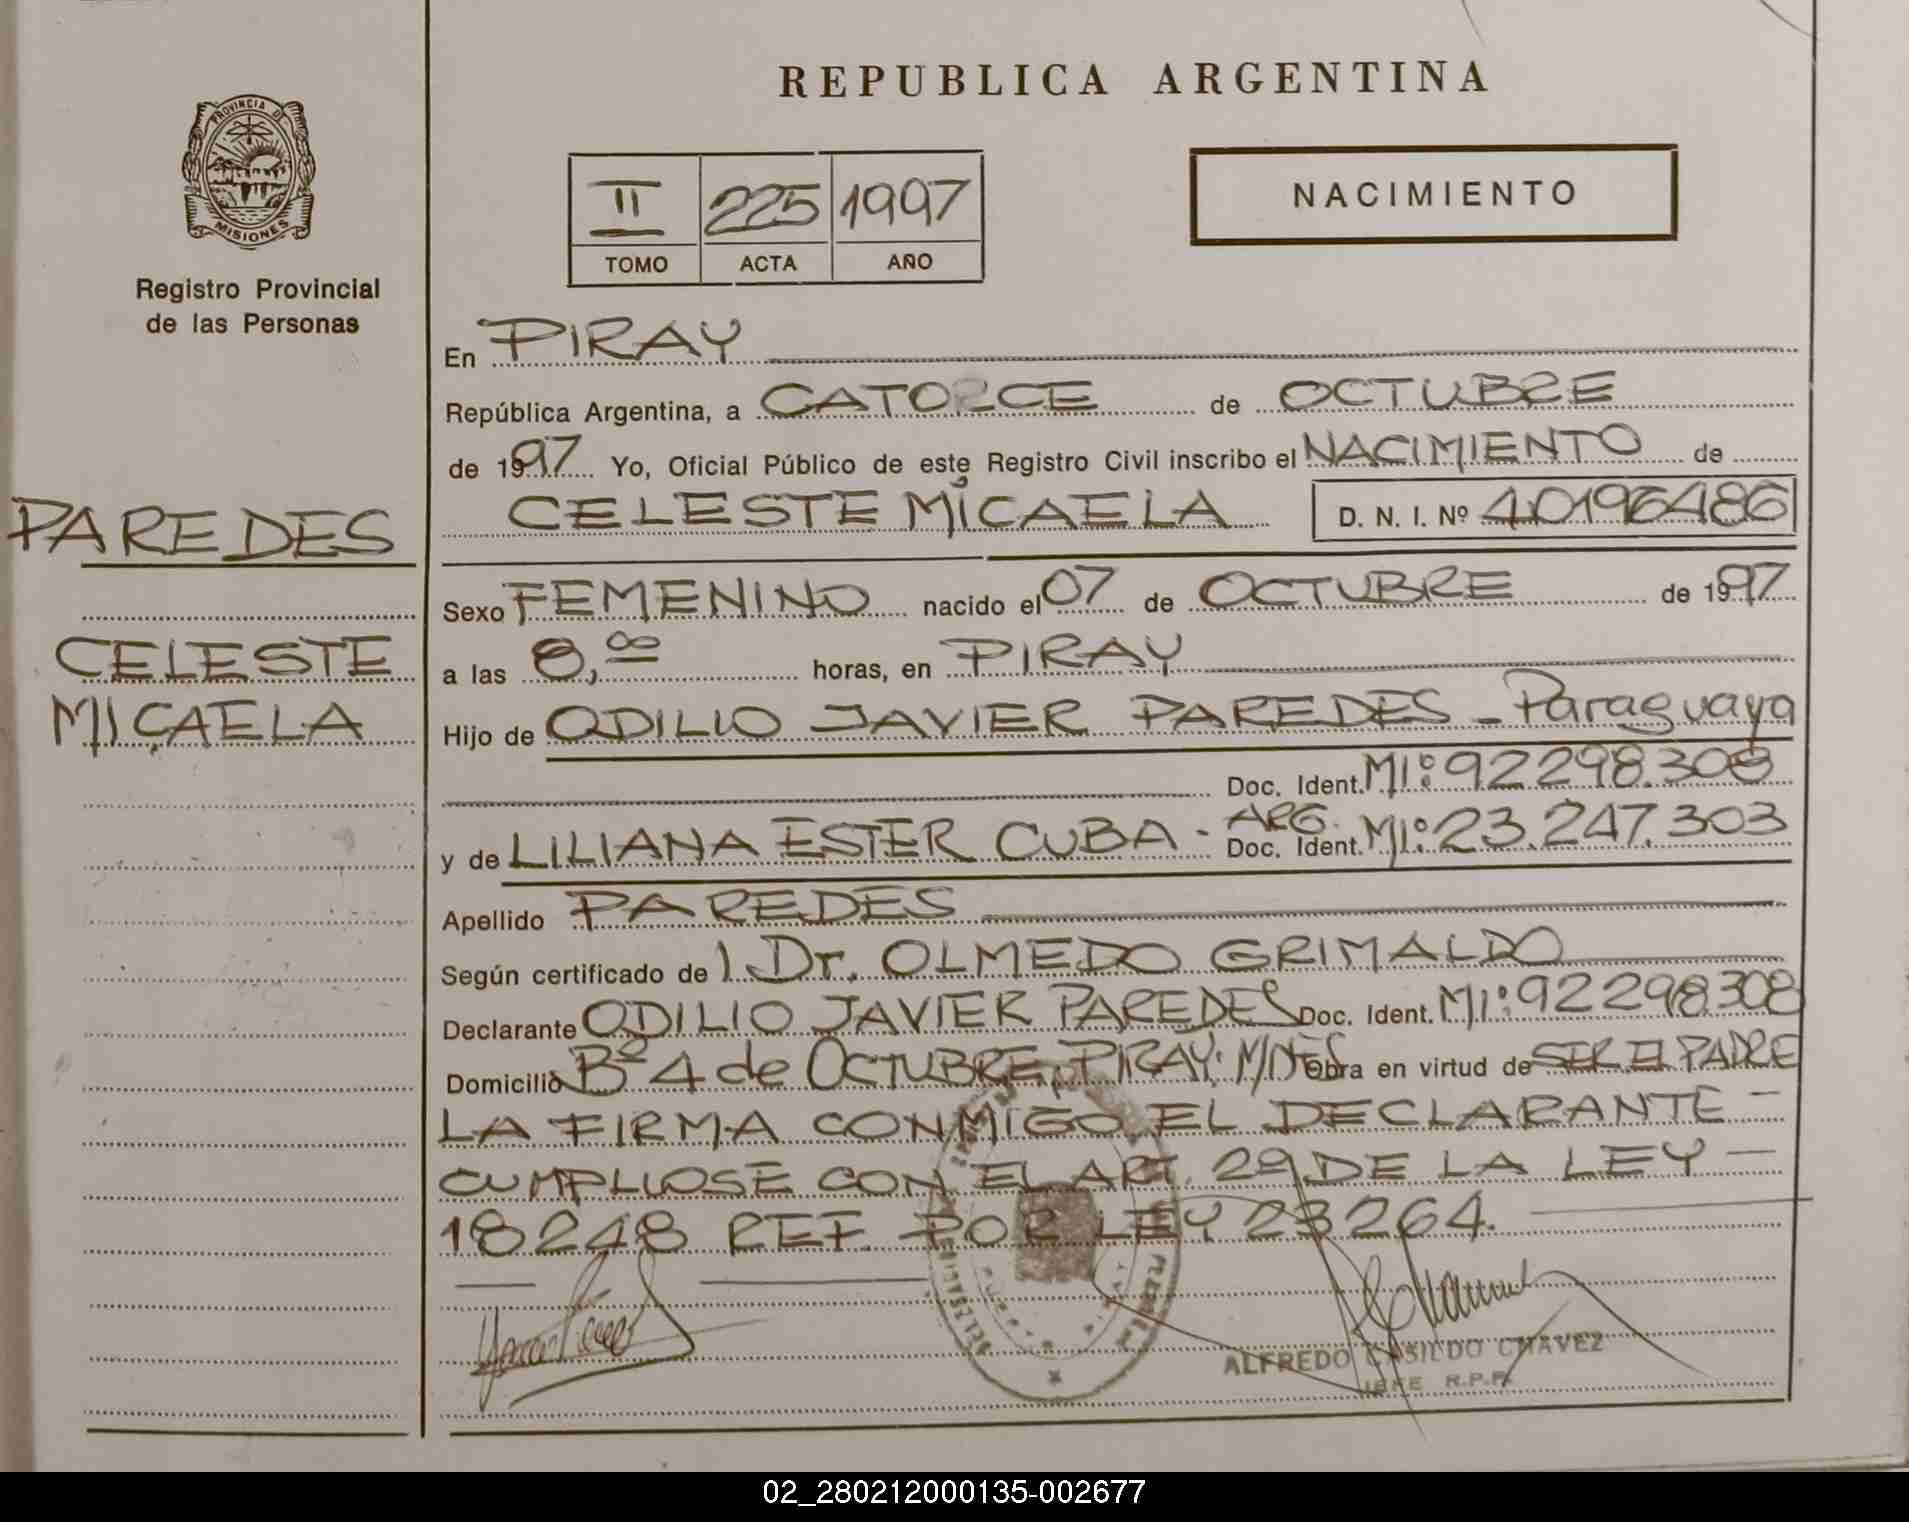 REPUBLICA ARGENTINA
PROVINCIA DE
MISIONES
Registro Provincial
de las Personas
II 225 1997
TOMO ACTA AÑO
NACIMIENTO
PAREDES
CELESTE
MICAELA
En PIRAY
República Argentina, a CATORCE de OCTUBRE
de 1997 Yo, Oficial Público de este Registro Civil inscribo el NACIMIENTO de
CELESTE MICAELA D. N. I. Nº 40196486
Sexo FEMENINO nacido el 07 de OCTUBRE de 1997
a las 8,00 horas, en PIRAY
Hijo de ODILIO JAVIER PAREDES - Paraguaya
Doc. Ident. MI: 92298.308
y de LILIANA ESTER CUBA - ARG. Doc. Ident. MI: 23.247.303
Apellido PAREDES
Según certificado de l Dr. OLMEDO GRIMALDO
Declarante ODILIO JAVIER PAREDES Doc. Ident. MI: 92298308
Domicilio Bº 4 de OCTUBRE, PIRAY. M/NES Obra en virtud de SER EL PADRE
LA FIRMA CONMIGO EL DECLARANTE -
CUMPLIOSE CON EL ART. 29 DE LA LEY -
18248 REF. POR LEY 23264.
ALFREDO CASILDO CHAVEZ
JEFE R.P.P.
02_280212000135-002677